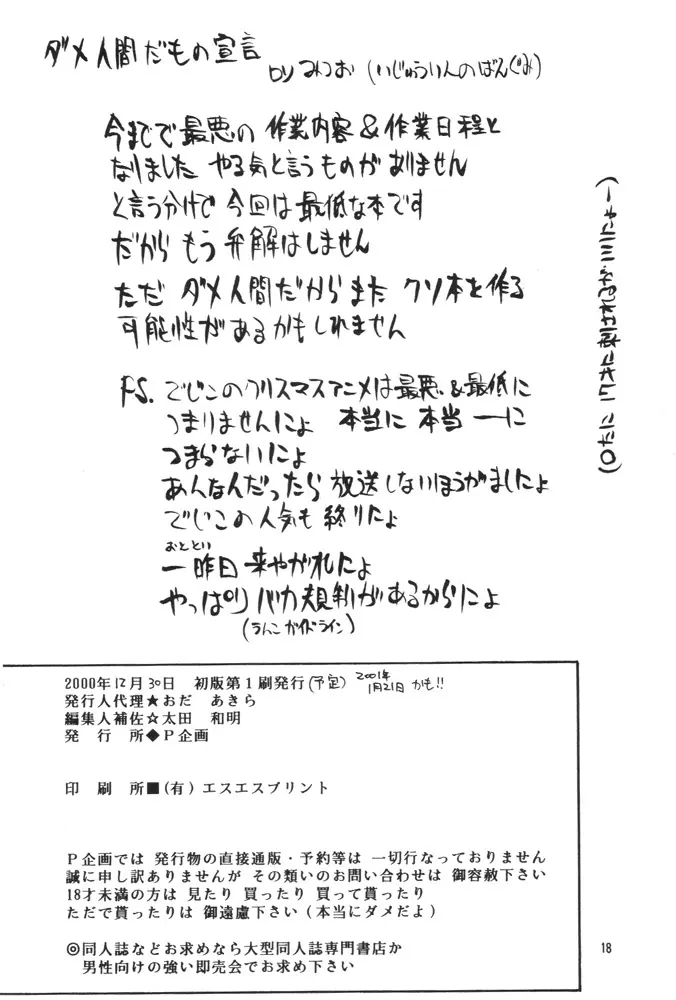 ダメ人間だもの宣言
by みつお(いじゅういんのばんぐみ)
今までで最悪の 作業内容&作業日程と
なりました やる気と言うものがありません
と言う分けで 今回は最低な本です
だから もう弁解はしません
ただ ダメ人間だからまた クソ本を作る
可能性があるかもしれません
P.S. でじこのクリスマスアニメは最悪&最低に
つまりませんにょ 本当に 本当ーに
つまらないにょ
あんなんだったら 放送しないほうがましにょ
でじこの人気も 終りにょ
おととい
一昨日 来やがれにょ
やっぱり バカ規制があるからにょ
(うんこガイドライン)
2000年12月30日 初版第1刷発行(予定) 2001年1月21日 かも!!
発行人代理★おだ あきら
編集人補佐☆太田 和明
発 行 所◆P企画
印 刷 所■(有)エスエスプリント
P企画では 発行物の直接通販・予約等は 一切行なっておりません
誠に申し訳ありませんが その類いのお問い合わせは 御容赦下さい
18才未満の方は 見たり 買ったり 買って貰ったり
ただで貰ったりは 御遠慮下さい(本当にダメだよ)
◎同人誌などお求めなら大型同人誌専門書店か
男性向けの強い即売会でお求め下さい
18